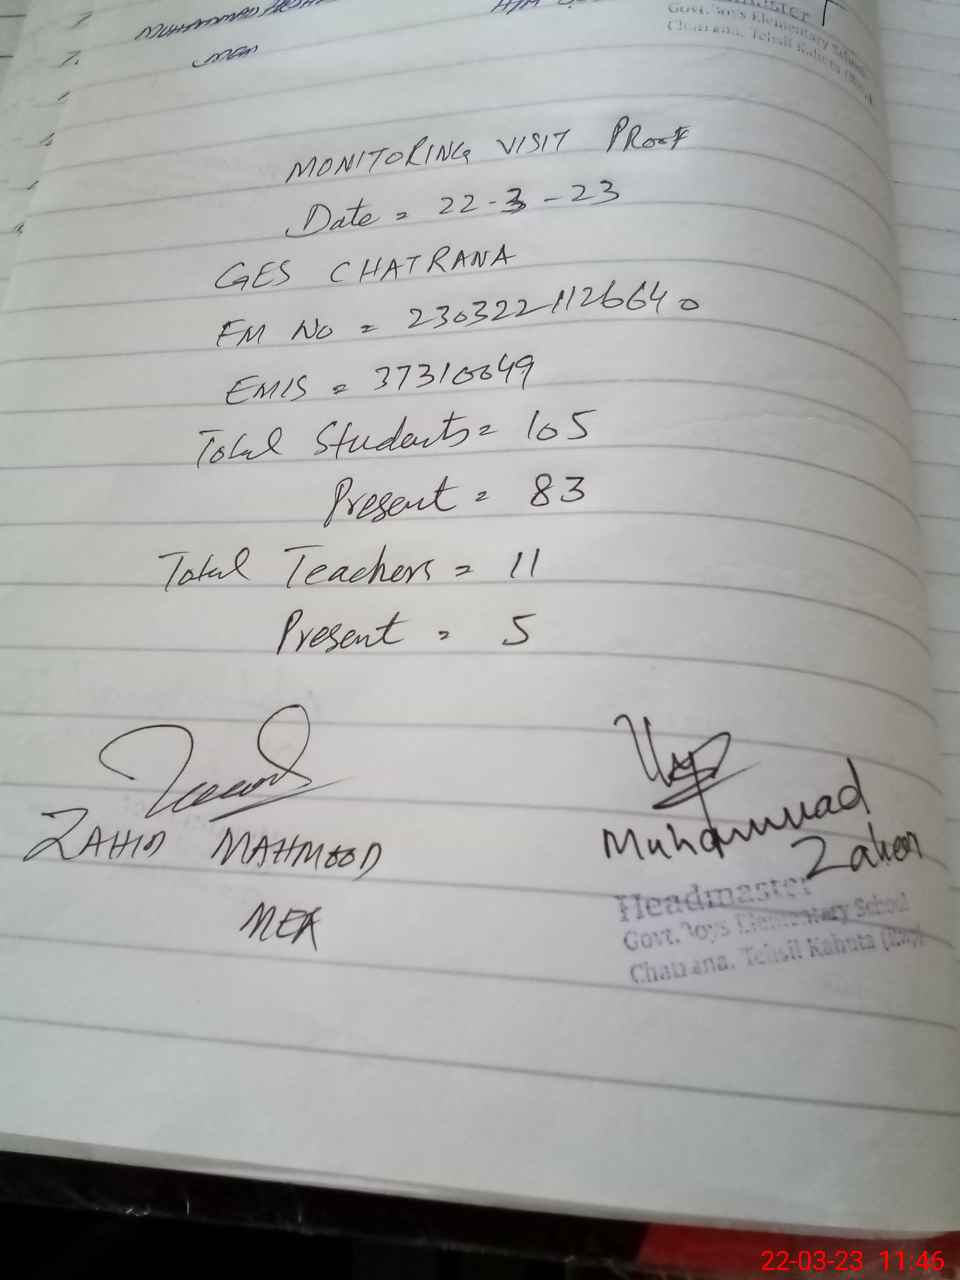 MEA
Govt. Boys Elementary School
Chatrana, Tehsil Kahuta
MONITORING VISIT PROOF
Date = 22-3-23
GES CHATRANA
FM No = 2303221126640
EMIS = 37310049
Total Students = 105
Present = 83
Total Teachers = 11
Present = 5
ZAHID MAHMOOD
MEA
Muhammad
Headmaster
Govt. Boys Elementary School
Chatrana, Tehsil Kahuta (Rwp)
22-03-23 11:46